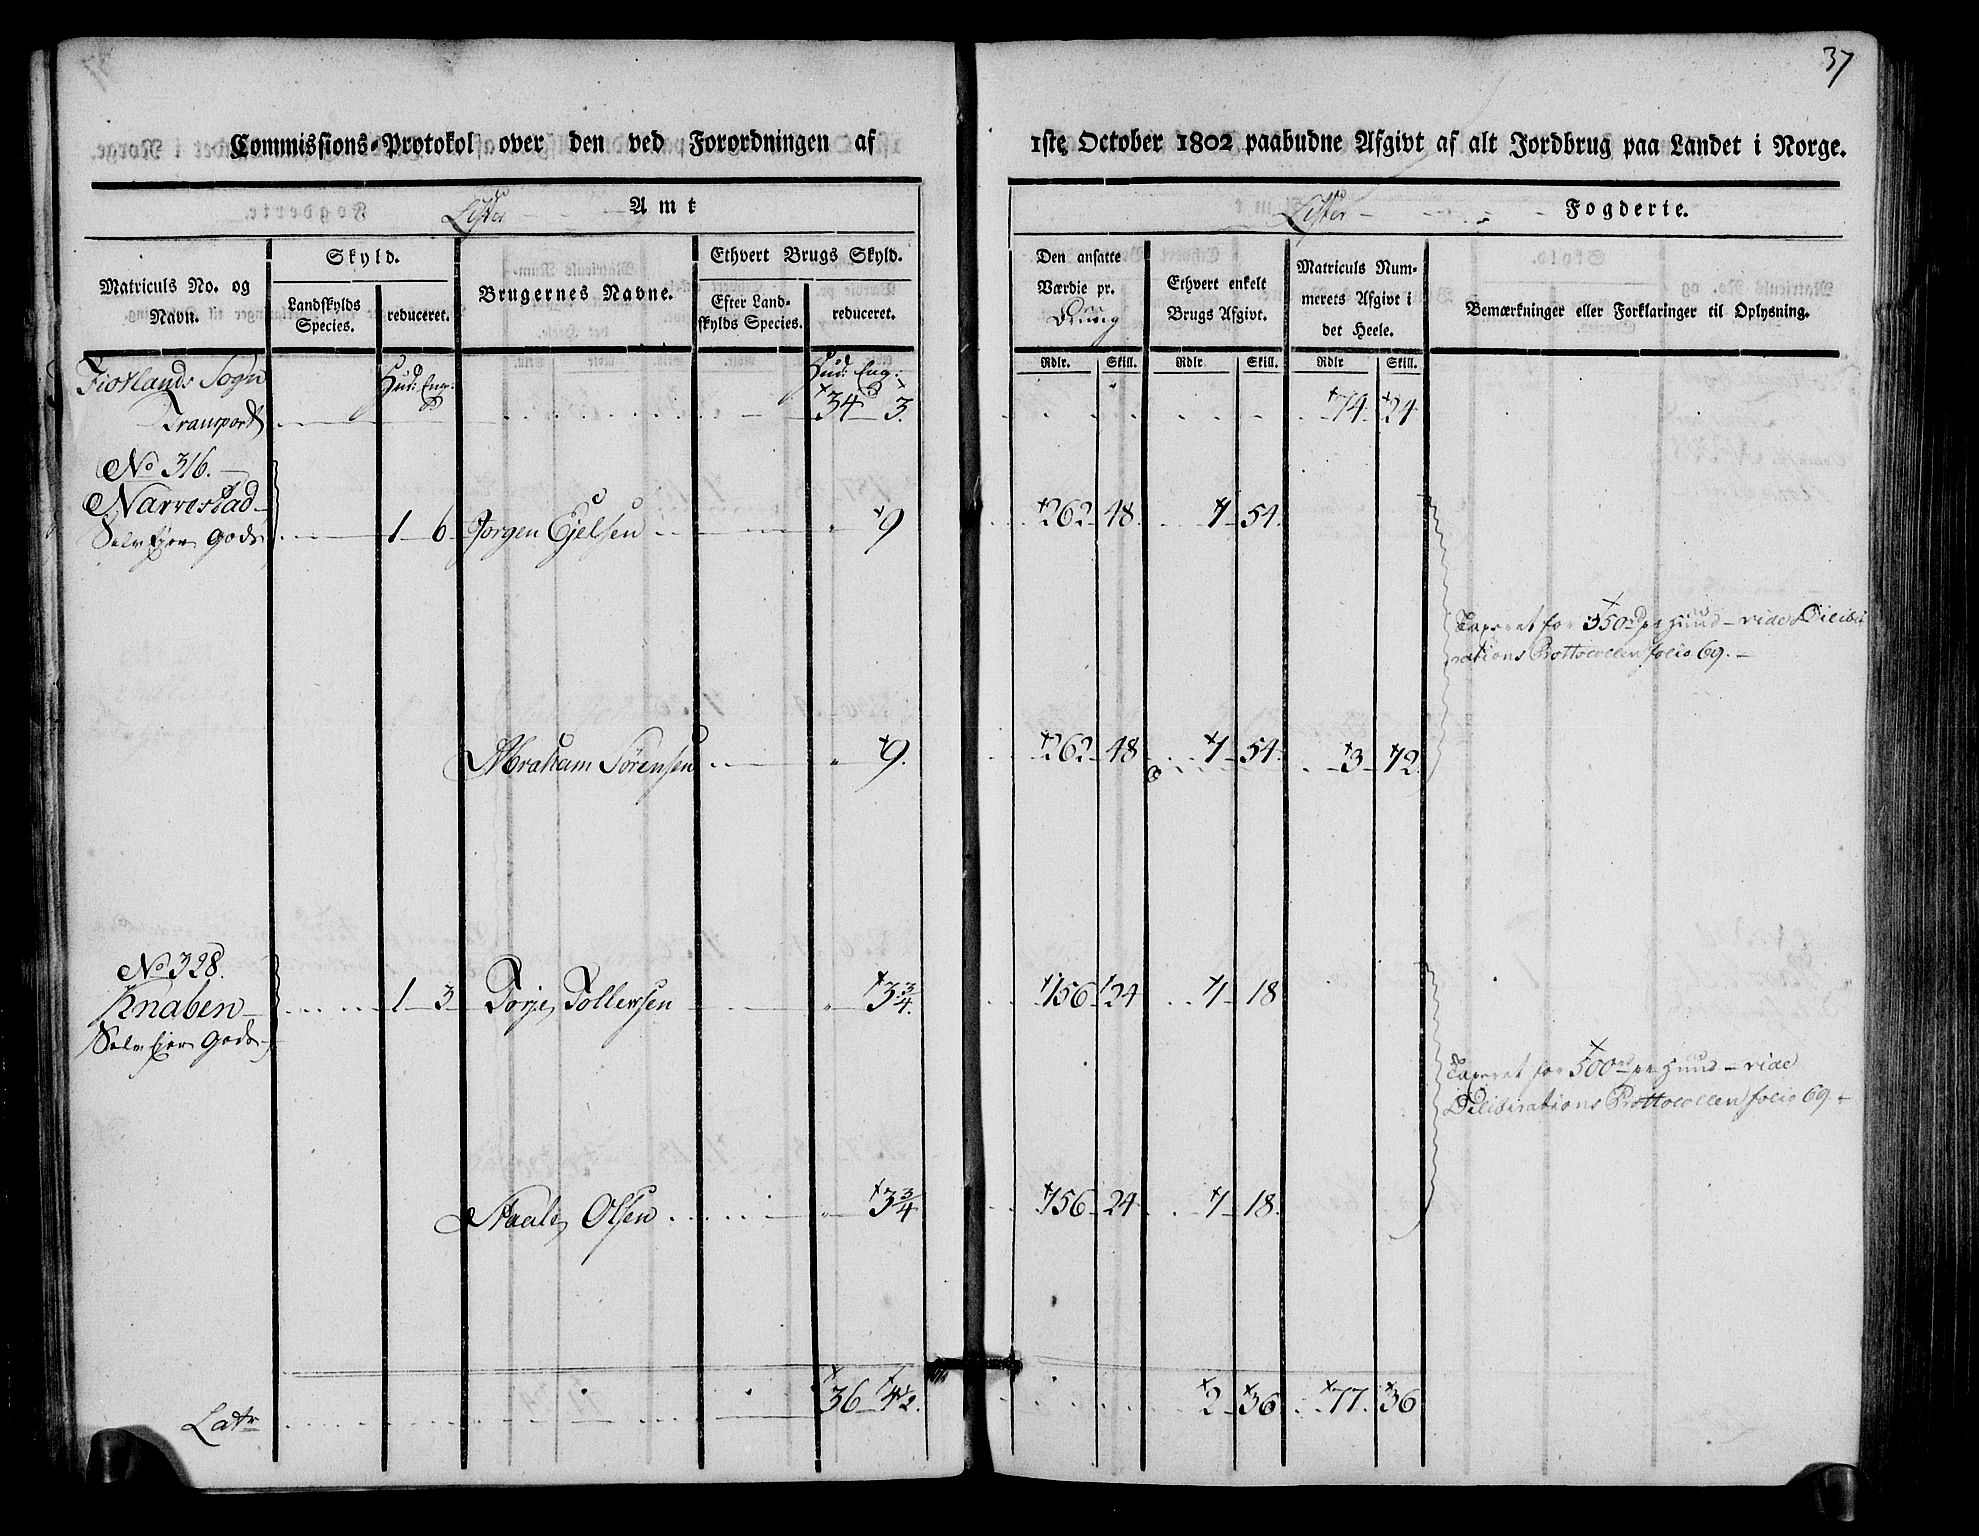 37
Commissions-Protokol over den ved Forordningen af 1ste October 1802 paabudne Afgivt af alt Jordbrug paa Landet i Norge.
Lister Amt Lister Fogderie.
Matriculs No. og Navn.
Skyld.
Landskylds Species.
reduceret.
Brugernes Navne.
Ethvert Brugs Skyld.
Efter Landskylds Species.
reduceret.
Den ansatte Værdie pr.
Ethvert enkelt Brugs Afgivt.
Matriculs Nummerets Afgivt i det Heele.
Bemærkninger eller Forklaringer til Oplysning.
Rdlr. Skill. Rdlr Skill. Rdlr Skill.
Fiotlands Sogn Hud: Eng: Hud: Eng:
Transport 34 3. 74 24
No 316.
Narvestad
Selv Ejer Gods 1 6 Jorgen Ejelsen " 9 262 48 1 54
Taxeret for 350 rd pr Huud – vide Delibe
rations Prottocollen folio 69. –
Abraham Sörensen " 9. 262 48 1 54 3 12
No 328.
Knaben 1 3 Torje Tollevsen " 3 3/4. 156 24 1 18
Selv Ejer Gods
Taxeret for 500 rd pr Huud – vide
Deliberations Prottocollen folio 69. –
Staale Olsen " 3 3/4 156 24 1 18.
Latr 36 4 1/2. 2 36 77. 36